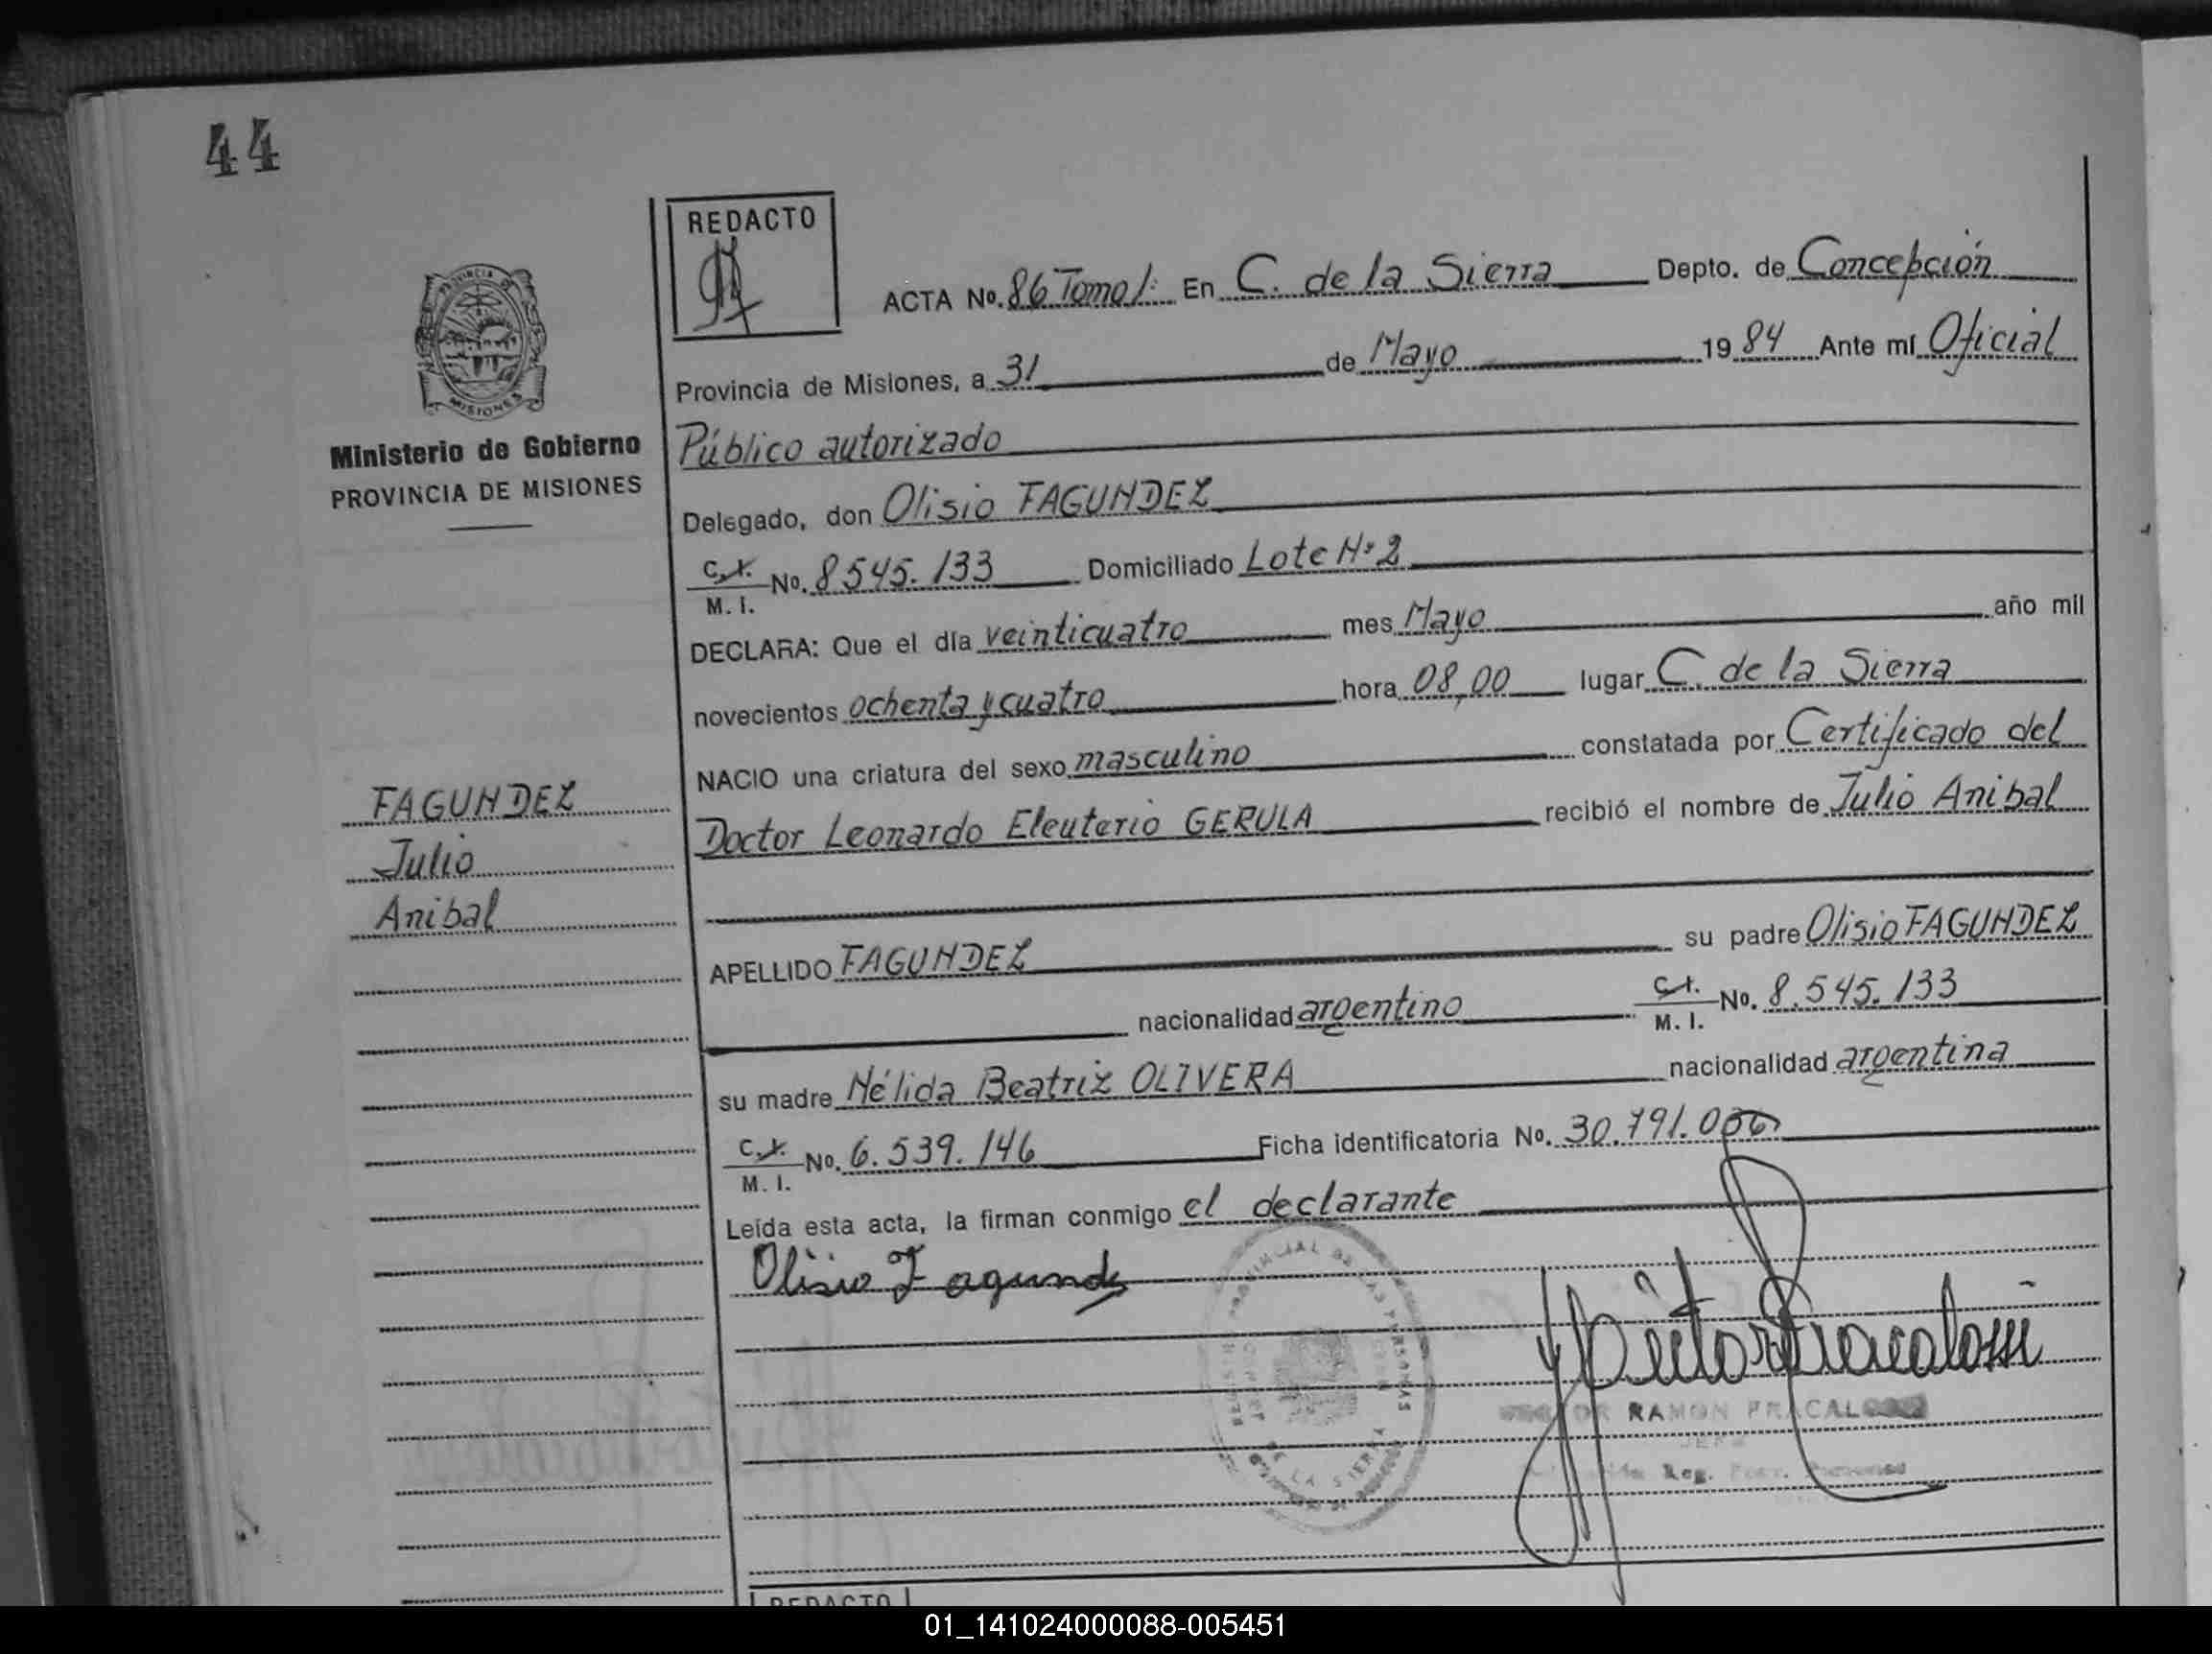 44
REDACTO
ACTA No. 86 Tomo 1: En C. de la Sierra Depto. de Concepción
Provincia de Misiones, a 31 de Mayo 1984 Ante mí Oficial
Público autorizado
PROVINCIA DE
MISIONES
Ministerio de Gobierno
PROVINCIA DE MISIONES
Delegado, don Olisio FAGUNDEZ
C.I. M. I. No. 8545.133 Domiciliado Lote Nº 2
DECLARA: Que el día veinticuatro mes Mayo año mil
novecientos ochenta y cuatro hora 08,00 lugar C. de la Sierra
NACIO una criatura del sexo masculino constatada por Certificado del
Doctor Leonardo Eleuterio GERULA recibió el nombre de Julio Anibal
FAGUNDEZ
Julio
Anibal
APELLIDO FAGUNDEZ su padre Olisio FAGUNDEZ
nacionalidad argentino C.I. M. I. No. 8.545.133
su madre Nélida Beatriz OLIVERA nacionalidad argentina
C.I. M. I. No. 6.539.146 Ficha identificatoria No. 30.791.
Leída esta acta, la firman conmigo el declarante
Olisio Fagundez
RAMON FRACALOSSI
JEFE
Reg.
DE LA SIERRA
REDACTO
01_141024000088-005451